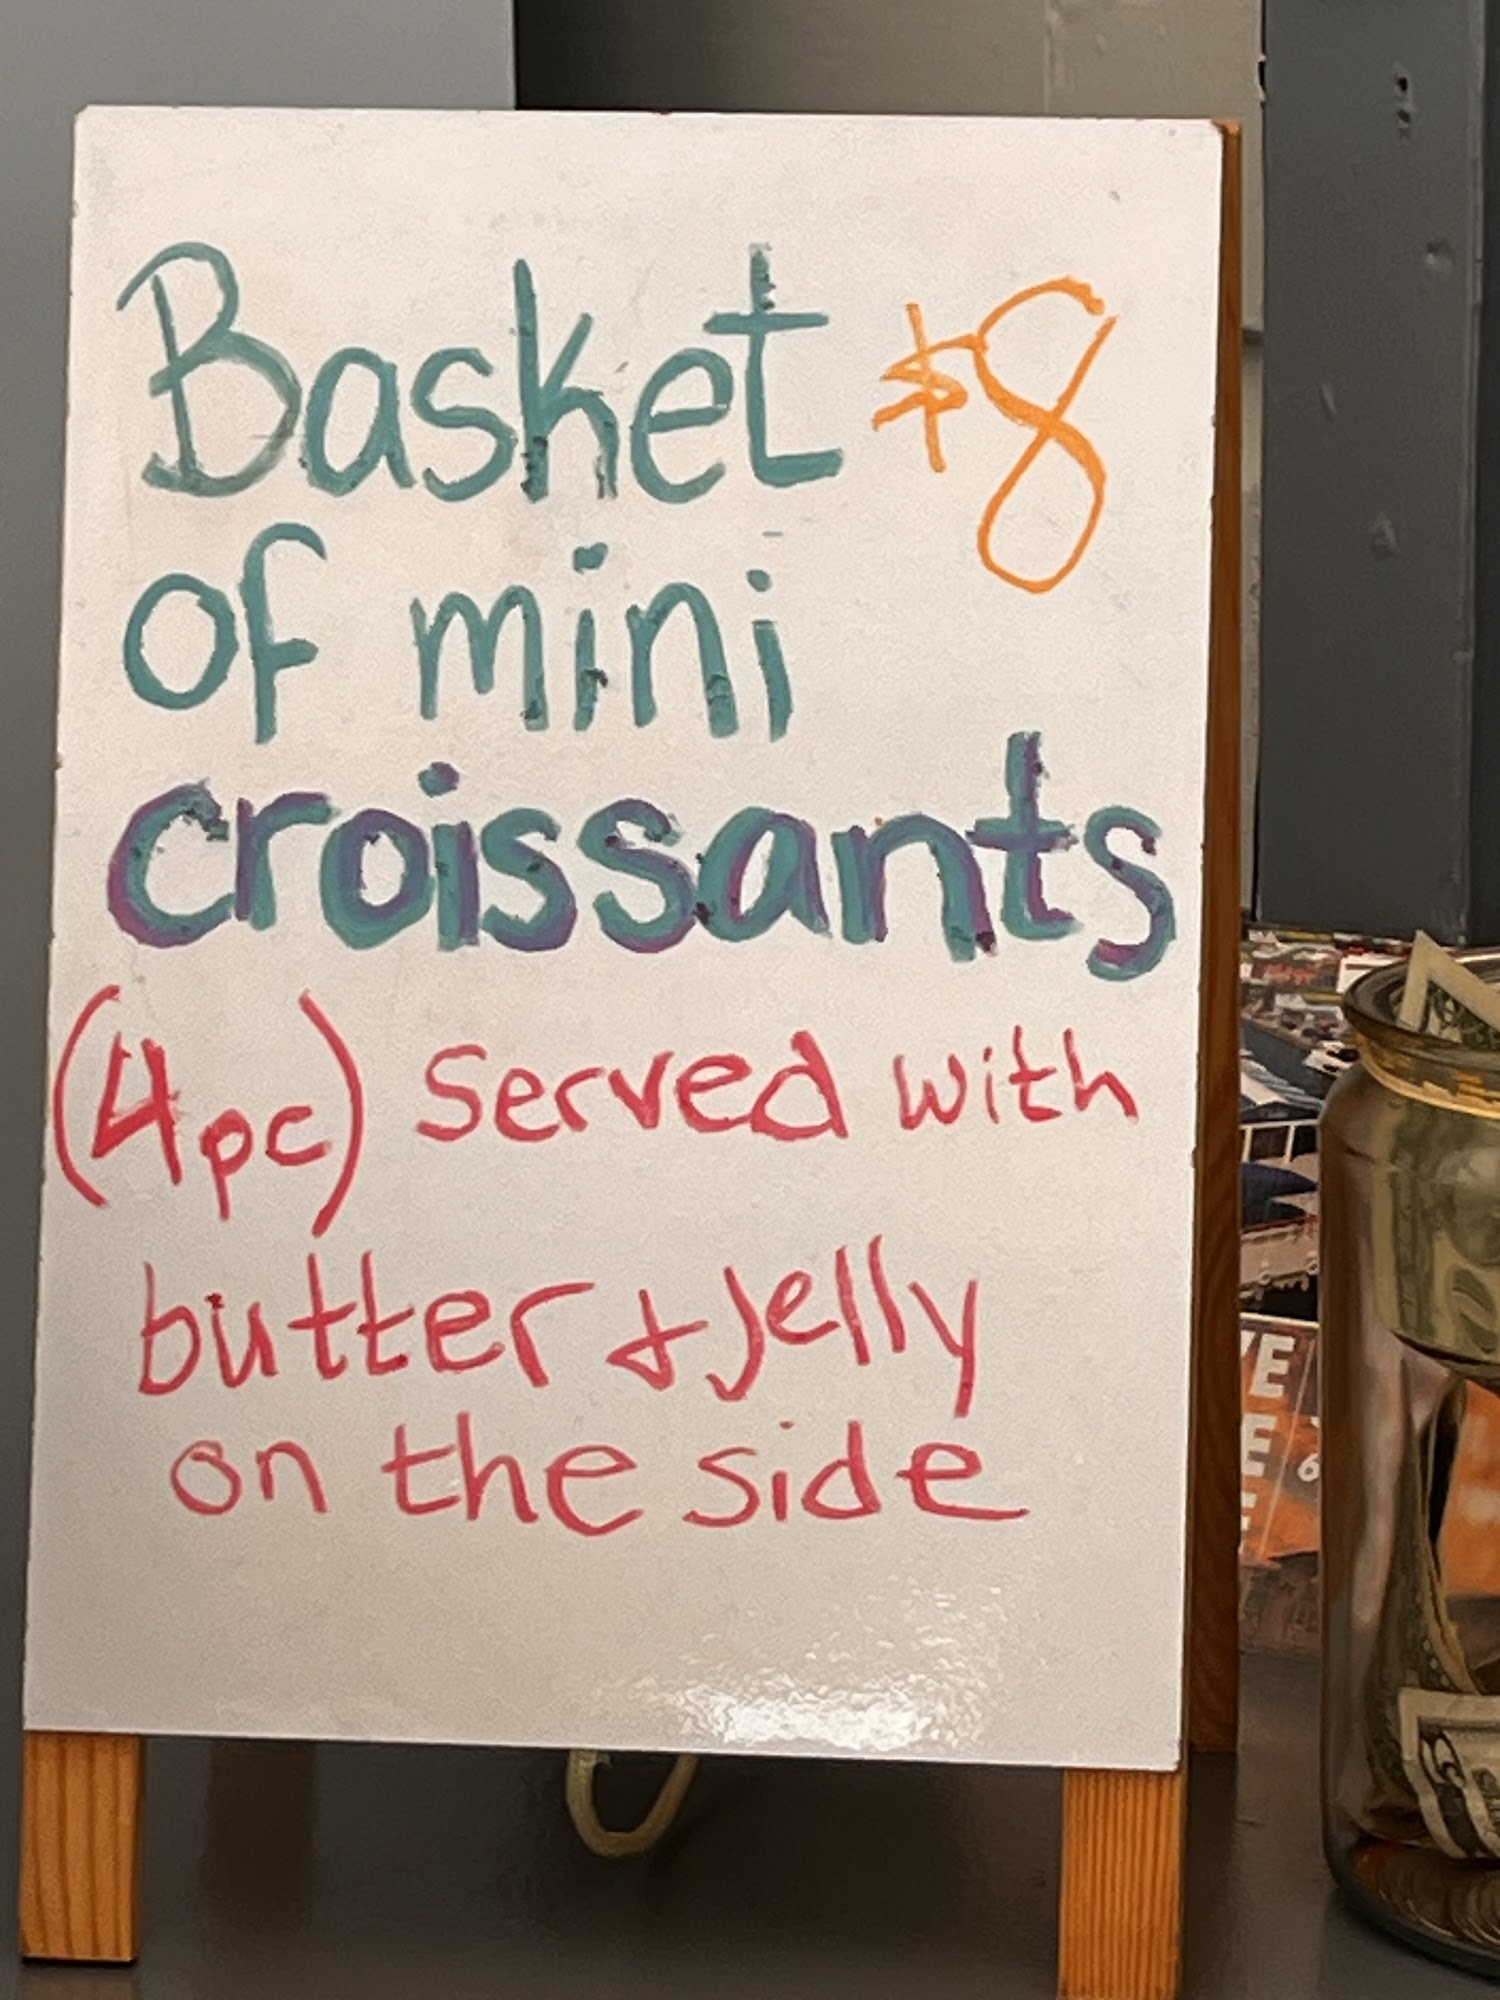 Basket $8
of mini
croissants
(4pc) served with
butter & Jelly
on the side